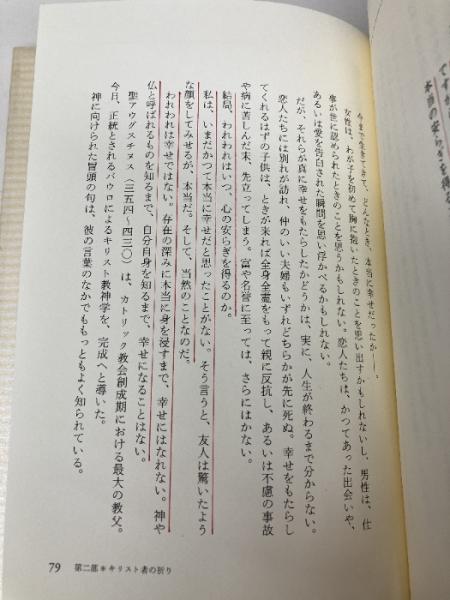 本当の安らぎを得る
今まで生きてきて、どんなとき、本当に幸せだったか――。
女性は、わが子を初めて胸に抱いたときのことを思い出すかもしれないし、男性は、仕
事が世に認められたときのことを思うかもしれない。恋人たちは、かつてあった出会いや、
あるいは愛を告白された瞬間を思い浮かべるかもしれない。
だが、それらが真に幸せをもたらしたかどうかは、実に、人生が終わるまで分からない。
恋人たちには別れが訪れ、仲のいい夫婦もいずれどちらかが先に死ぬ。幸せをもたらし
てくれるはずの子供は、ときが来れば全身全霊をもって親に反抗し、あるいは不慮の事故
や病に苦しんだ末、先立ってしまう。富や名誉に至っては、さらにはかない。
結局、われわれはいつ、心の安らぎを得るのか。
私は、いまだかつて本当に幸せだと思ったことがない。そう言うと、友人は驚いたよう
な顔をしてみせるが、本当だ。そして、当然のことなのだ。
われわれは幸せではない。存在の深みに本当に身を浸すまで、幸せにはなれない。神や
仏と呼ばれるものを知るまで、自分自身を知るまで、幸せになることはない。
聖アウグスチヌス（三五四～四三〇）は、カトリック教会創成期における最大の教父。
今日、正統とされるパウロによるキリスト教神学を、完成へと導いた。
神に向けられた冒頭の句は、彼の言葉のなかでももっともよく知られている。
79 第二部＊キリスト者の祈り